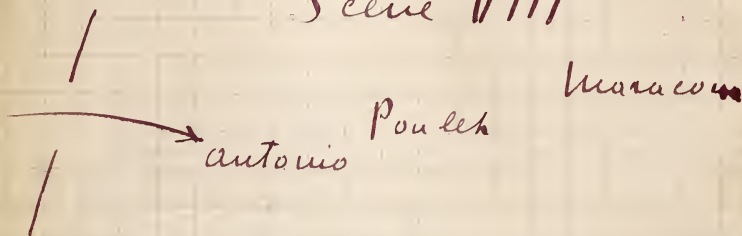 Scene VIII
Maracona
Pouleh
antonio